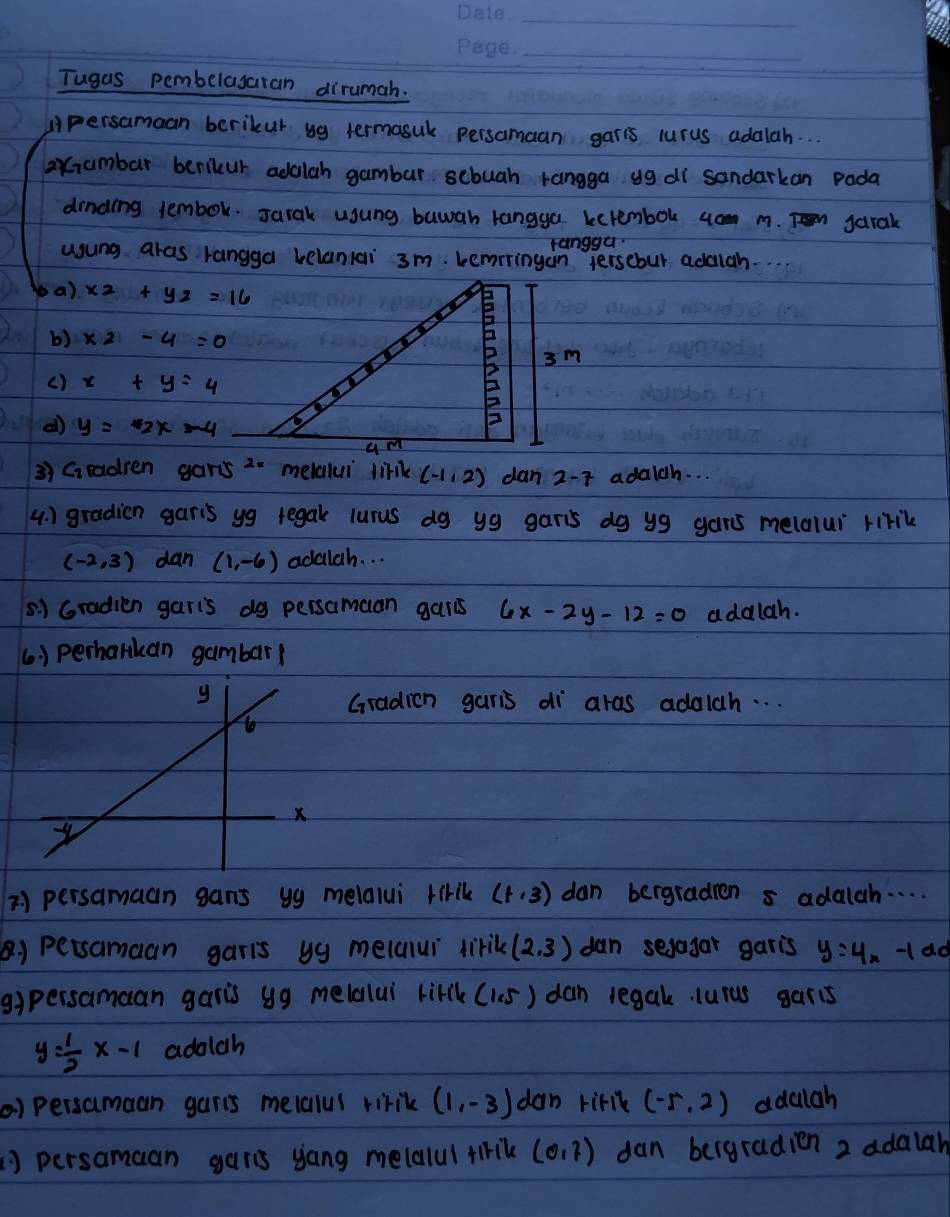 Date.
Page.
Tugas pembelajaran dirumah.
1) persamaan berikut yg termasuk persamaan garis lurus adalah...
2) Gambar berikut adalah gambar sebuah tangga yg di sandarkan pada
dinding tembok. Jarak ujung bawah tangga ketembok 4 m. jarak
ujung atas tangga kelantai 3m. kemiringan tangga tersebut adalah....
a) x2 + y2 = 16
b) x2 - 4 = 0
c) x + y = 4
d) y = 2x - 4
3 m
4 m
3) Gradien garis 2x melalui titik (-1,2) dan 2-7 adalah...
4.) gradien garis yg tegak lurus dg yg garis dg yg garis melalui titik
(-2,3) dan (1,-6) adalah...
5.) Gradien garis dg persamaan garis 6x - 2y - 12 = 0 adalah.
6.) perhatikan gambar!
y
6
Gradien garis di atas adalah...
x
-4
7.) persamaan garis yg melalui titik dan bergradien 5 adalah....
8.) Persamaan garis yg melalui titik (2.3) dan sejajar garis y = 4x -1 ad
9) persamaan garis yg melalui titik (1.5) dan tegak lurus garis
y = 1/2 x - 1 adalah
0.) Persamaan garis melalui titik (1,-3) dan titik (-5,2) adalah
1.) persamaan garis yang melalui titik (0,7) dan bergradien 2 adalah